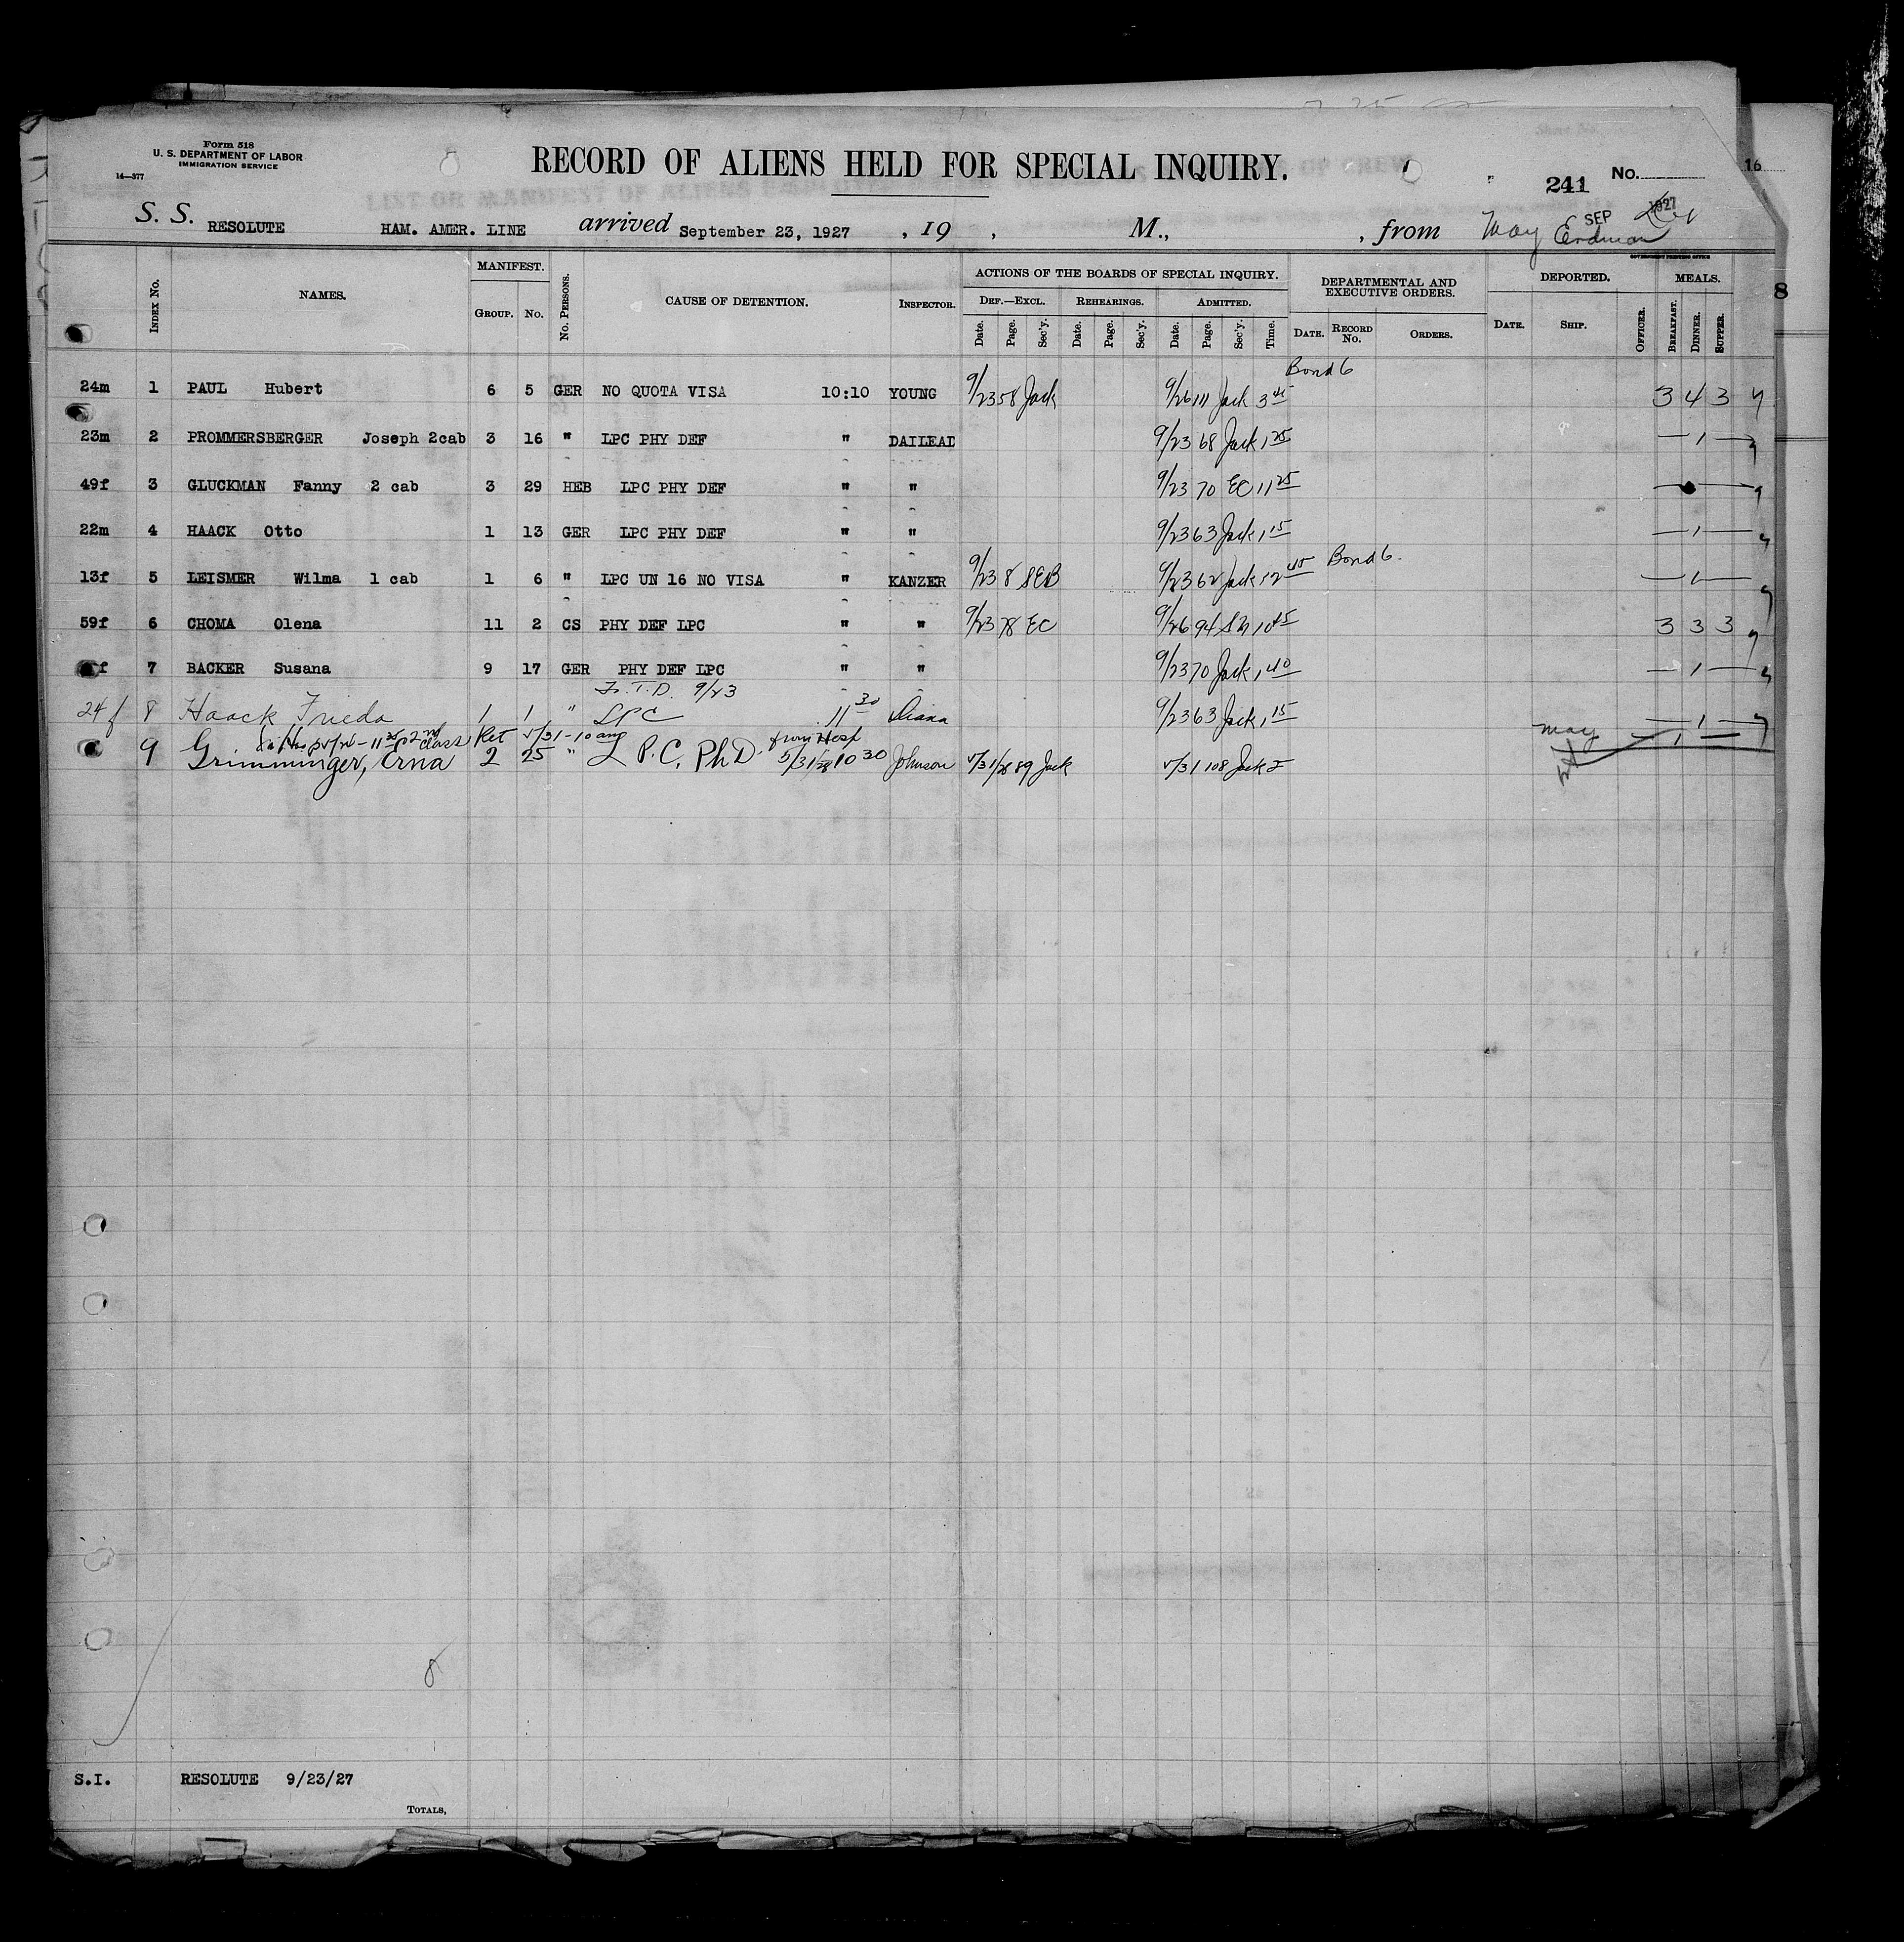 Form 518
U. S. DEPARTMENT OF LABOR
IMMIGRATION SERVICE
14—377
RECORD OF ALIENS HELD FOR SPECIAL INQUIRY.
241 No.
16
S. S. RESOLUTE HAM. AMER. LINE arrived September 23, 1927 , 19 , M., , from May Erdman SEP 1927
GOVERNMENT PRINTING OFFICE
INDEX No. NAMES. MANIFEST. GROUP. No. No. PERSONS. CAUSE OF DETENTION. INSPECTOR. ACTIONS OF THE BOARDS OF SPECIAL INQUIRY. DEPARTMENTAL AND EXECUTIVE ORDERS. DEPORTED. MEALS. 8
DEF.—EXCL. REHEARINGS. ADMITTED.
Date. Page. Sec'y. Date. Page. Sec'y. Date. Page. Sec'y. Time. DATE. RECORD No. ORDERS. DATE. SHIP. OFFICER. BREAKFAST. DINNER. SUPPER.
Bond 6
24m 1 PAUL Hubert 6 5 GER NO QUOTA VISA 10:10 YOUNG 9/23 58 Jack 9/26 111 Jack 3 45 3 4 3
23m 2 PROMMERSBERGER Joseph 2cab 3 16 " LPC PHY DEF " DAILEAD 9/23 68 Jack 1 25 — 1 —
49f 3 GLUCKMAN Fanny 2 cab 3 29 HEB LPC PHY DEF " " 9/23 70 EC 11 25
22m 4 HAACK Otto 1 13 GER LPC PHY DEF " " 9/23 63 Jack 1 15 — 1 —
13f 5 LEISMER Wilma 1 cab 1 6 " LPC UN 16 NO VISA " KANZER 9/23 8 SEB 9/23 62 Jack 12 45 Bond 6. — 1 —
59f 6 CHOMA Olena 11 2 CS PHY DEF LPC " " 9/23 78 EC 9/26 94 10 45 3 3 3
f 7 BACKER Susana 9 17 GER PHY DEF LPC " " 9/23 70 Jack 1 40 — 1 —
T.D. 9/23
24 f 8 Haack Frieda 1 1 " LPC 11 30 Diana 9/23 63 Jack 1 15 — 1 —
2nd class Ret 5/31 - 10 am from Hosp May
9 Grimminger, Erna 2 25 " L.P.C. PhD 5/31/28 10 30 Johnson 5/31/28 89 Jack 5/31 108 Jack 2 — 1 —
8
S.I. RESOLUTE 9/23/27
TOTALS,